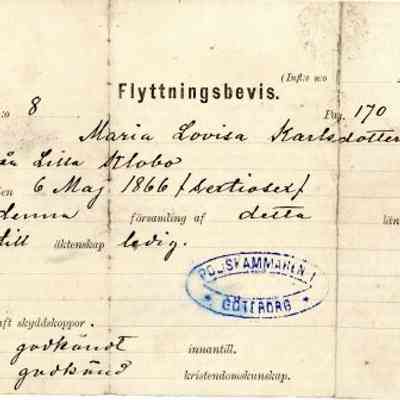 (Inft:e n:o
Flyttningsbevis.
:o 8 Pag. 170
Maria Lovisa Karlsdotter
från Lilla Klobo
den 6 Maj 1866 /Sextiosex/
denna församling af detta län
till äktenskap ledig.
POLISKAMMAREN I
* GÖTEBORG *
haft skyddskoppor.
godkändt innantill.
godkänd kristendomskunskap.